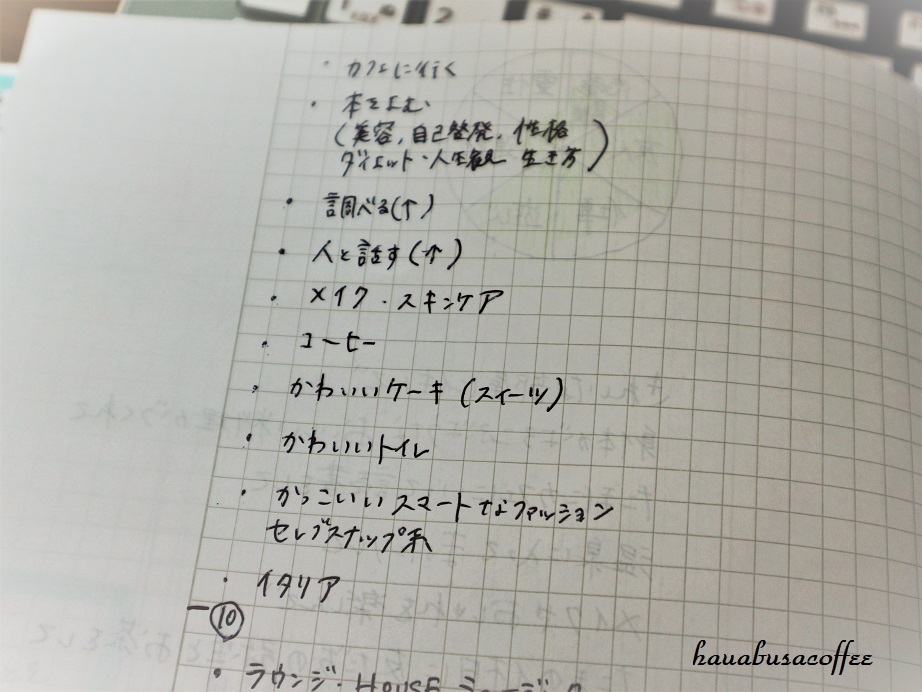 ・カフェに行く
・本をよむ
(美容, 自己啓発, 性格
ダイエット・人生観 生き方)
・調べる(↑)
・人と話す(↑)
・メイク・スキンケア
・コーヒー
・かわいいケーキ(スイーツ)
・かわいいトイレ
・かっこいいスマートなファッション
セレブスナップ系
・イタリア
10
・ラウンジ・HOUSE ミュージック
hauabusacoffee